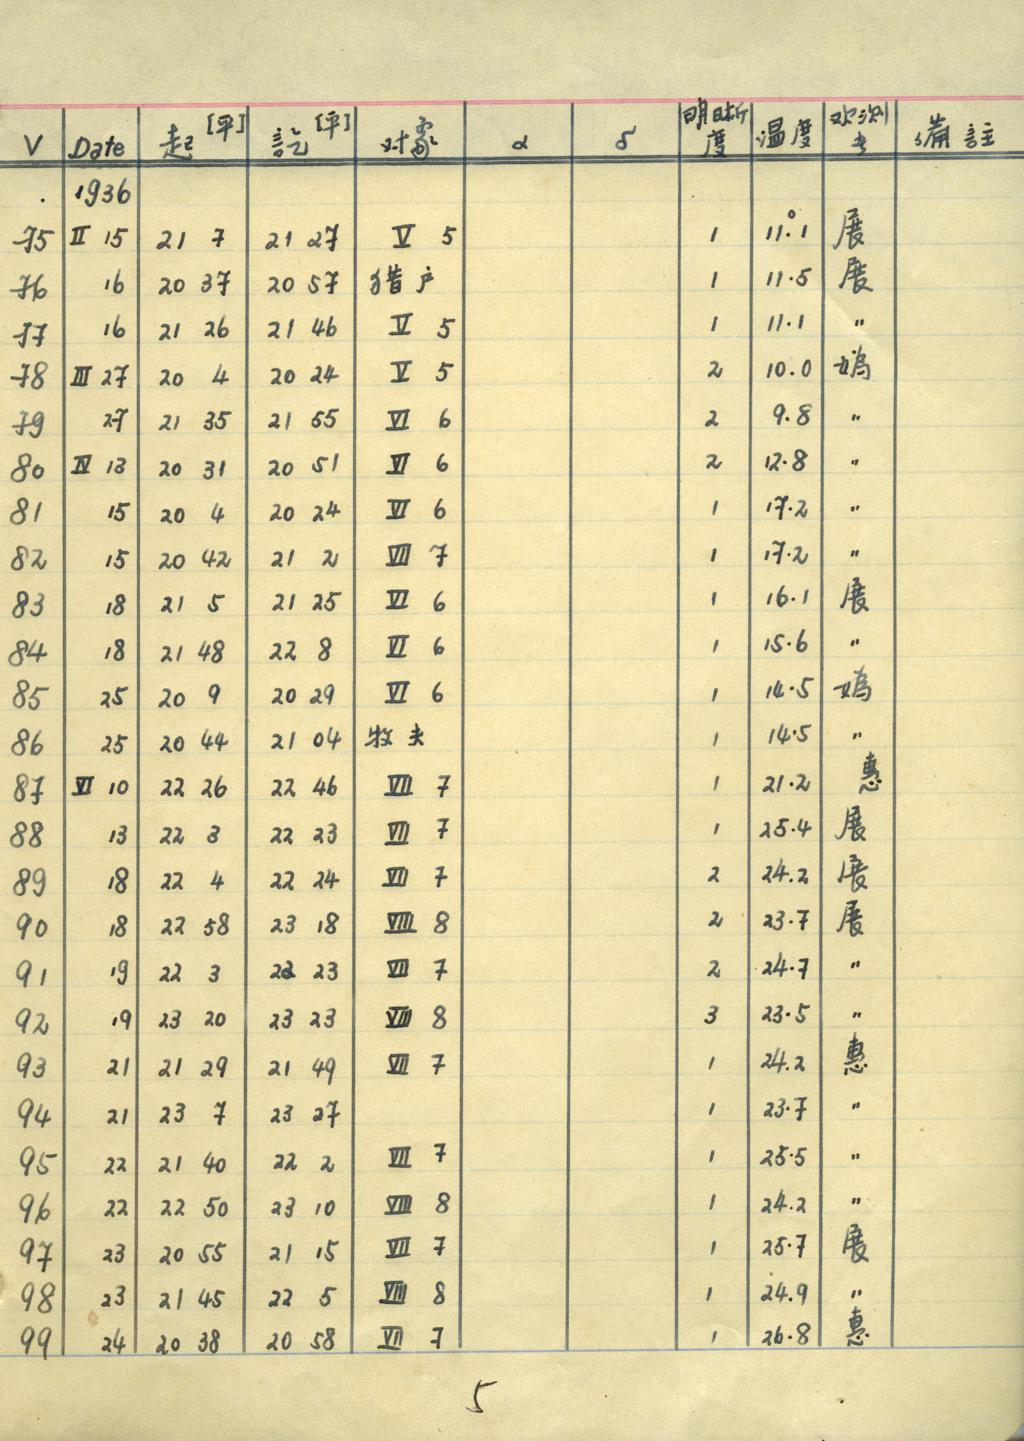 V Date 起[平] 訖[平] 对象 α δ 明晰度 温度 观测者 備註
. 1936
75 II 15 21 7 21 27 V 5 1 11.°1 展
76 16 20 37 20 57 猎户 1 11.5 展
77 16 21 26 21 46 V 5 1 11.1 〃
78 III 27 20 4 20 24 V 5 2 10.0 鳩
79 27 21 35 21 55 VI 6 2 9.8 〃
80 IV 13 20 31 20 51 VI 6 2 12.8 〃
81 15 20 4 20 24 VI 6 1 17.2 〃
82 15 20 42 21 2 VII 7 1 17.2 〃
83 18 21 5 21 25 VI 6 1 16.1 展
84 18 21 48 22 8 VI 6 1 15.6 〃
85 25 20 9 20 29 VI 6 1 14.5
86 25 20 44 21 04 牧夫 1 14.5 〃
87 VI 10 22 26 22 46 VII 7 1 21.2 惠
88 13 22 3 22 23 VII 7 1 25.4 展
89 18 22 4 22 24 VII 7 2 24.2 展
90 18 22 58 23 18 VIII 8 2 23.7 展
91 19 22 3 22 23 VII 7 2 24.7 〃
92 19 23 20 23 23 VIII 8 3 23.5 〃
93 21 21 29 21 49 VII 7 1 24.2 惠
94 21 23 7 23 27 1 23.7 〃
95 22 21 40 22 2 VII 7 1 25.5 〃
96 22 22 50 23 10 VIII 8 1 24.2 〃
97 23 20 55 21 15 VII 7 1 25.7 展
98 23 21 45 22 5 VIII 8 1 24.9 〃
99 24 20 38 20 58 VII 7 1 26.8 惠
5